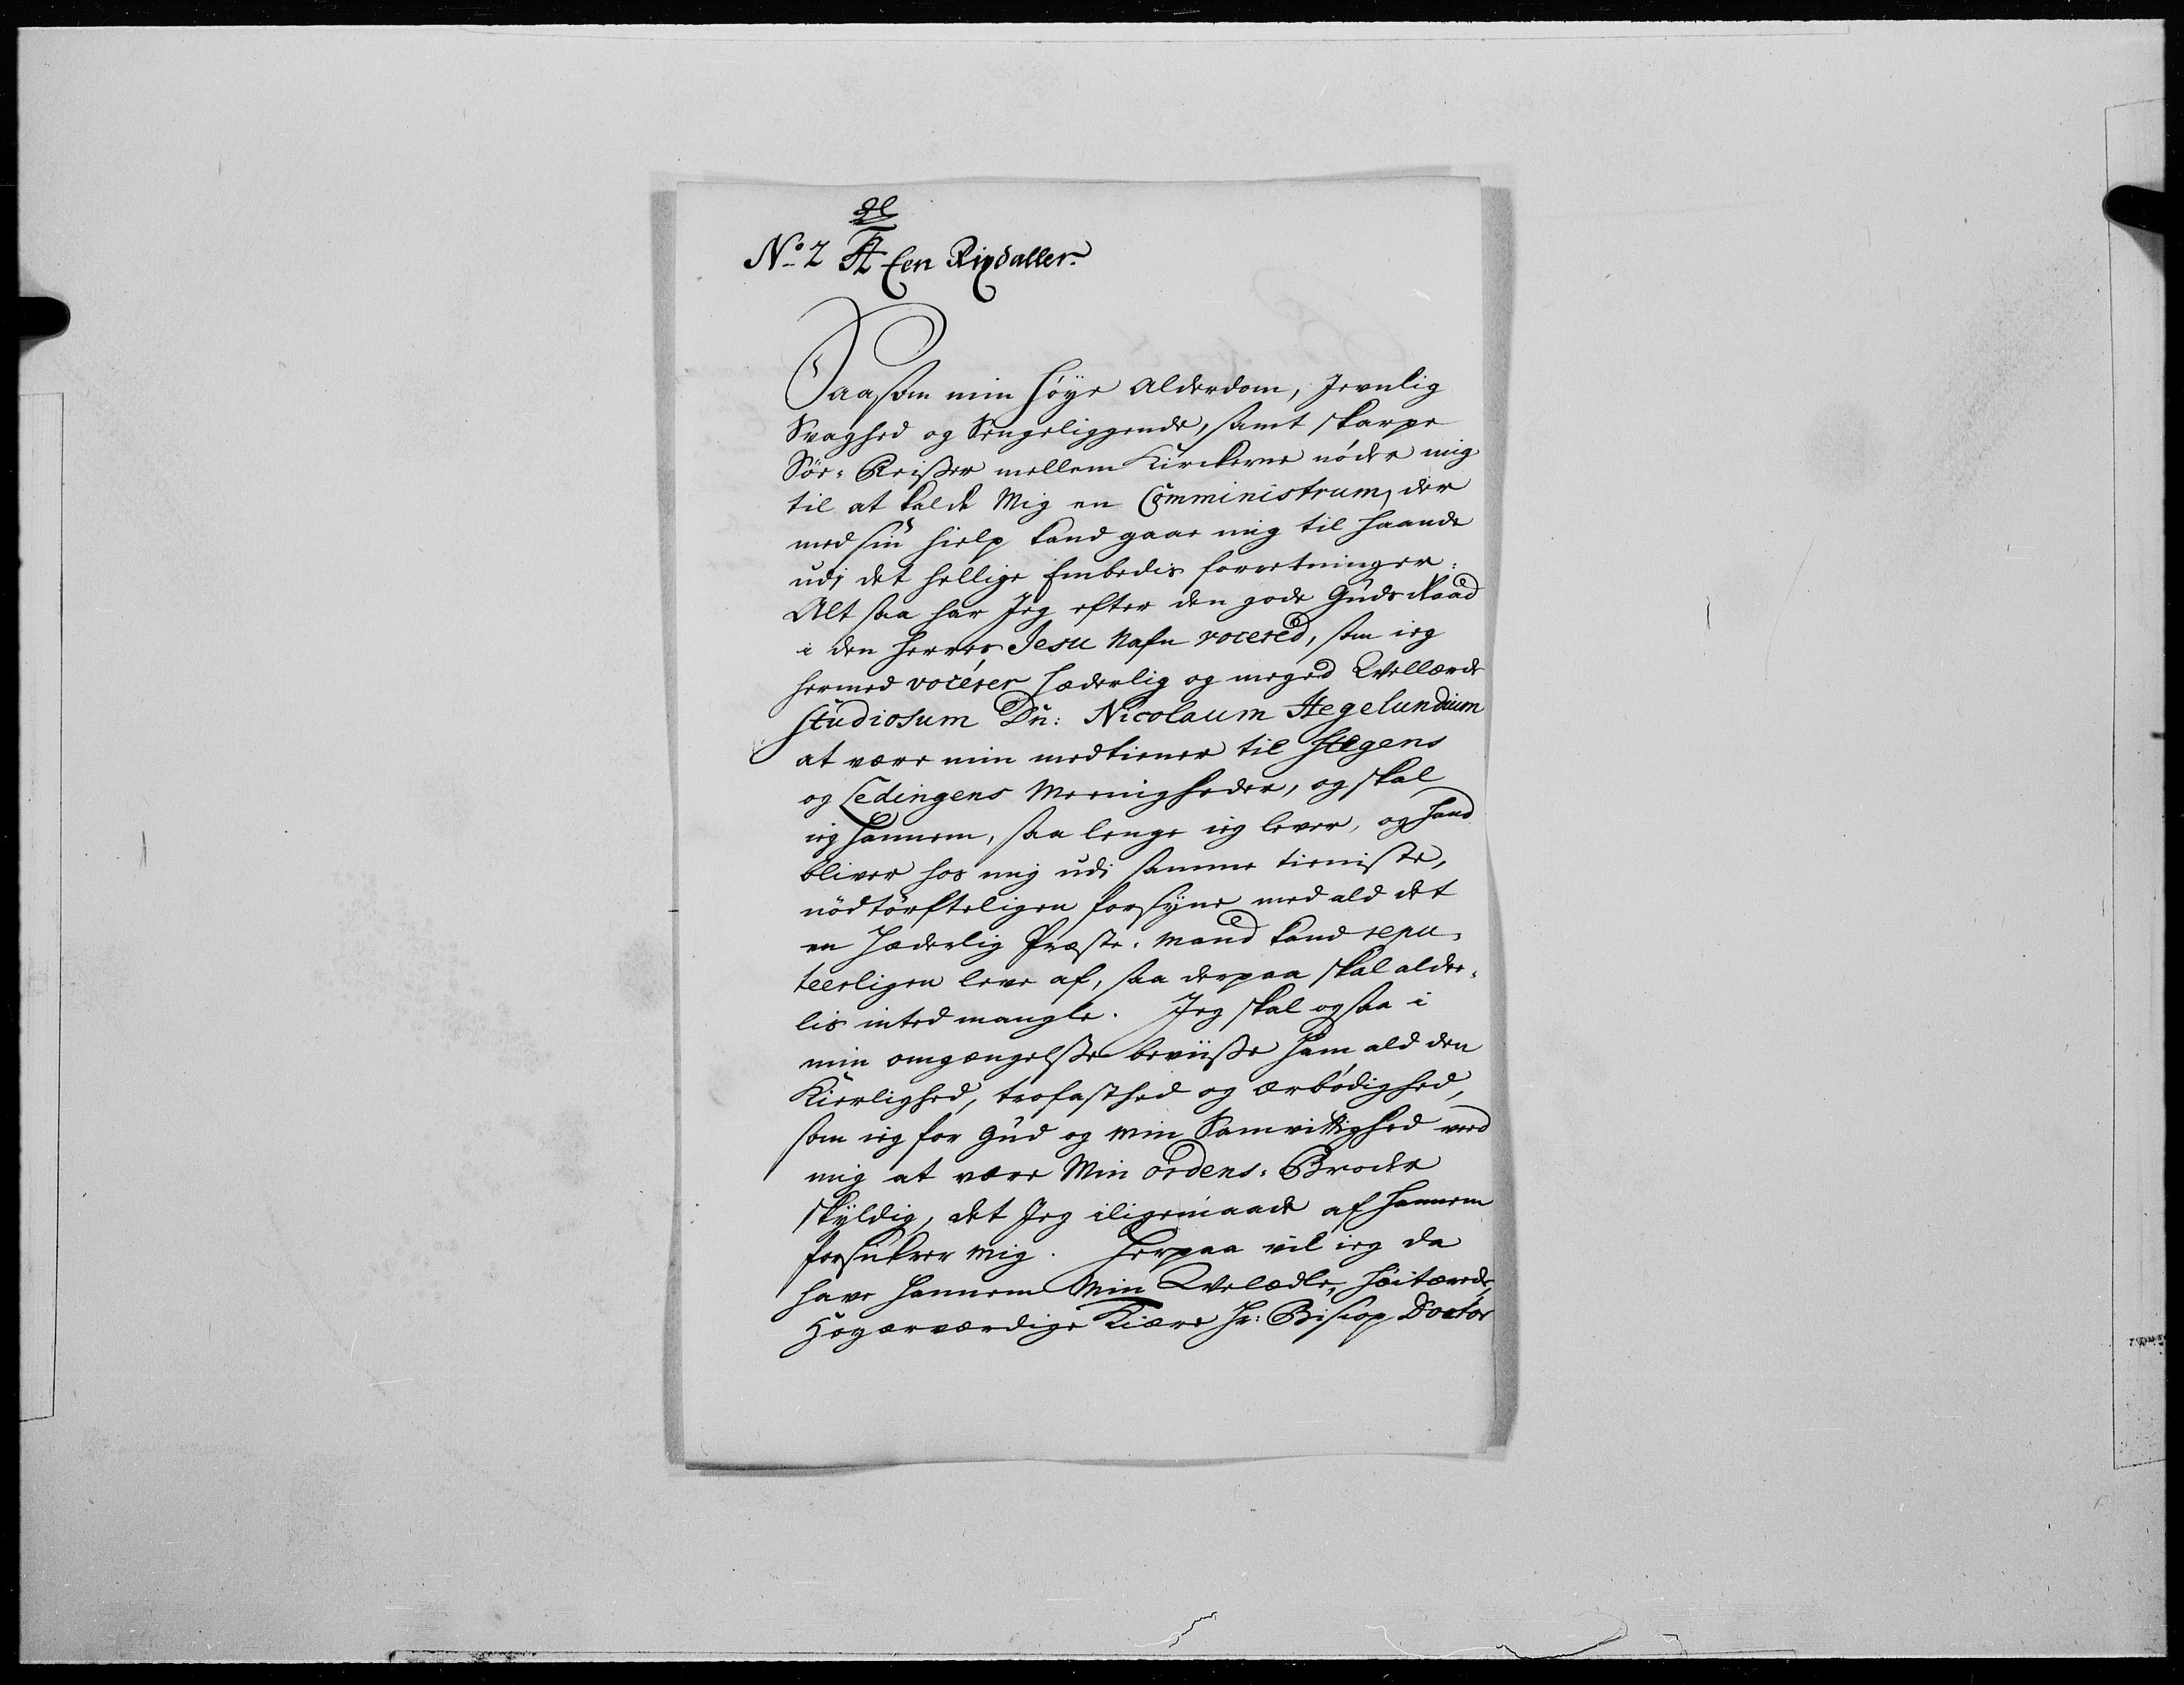 No 2 Een Rixdaller.
Saasom min høye Alderdom, Jevnlig
Svaghed og Sengeliggende, samt skarpe
Söe-Reisser mellem Kirckerne nøder mig
til at kalde Mig en Comministrum, der
med sin hielp kand gaae mig til haande
udi det hellige Embedis forretninger:
Alt saa har Jeg efter den gode Guds Raad
i den Herres Jesu Nafn vocered, som ieg
hermed vocérer hæderlig og meged Vellærde
Studiosum Dn: Nicolaum Hegelundium
at være min medtiener til Stegens
og Ledingens Meenigheder, og skal
ieg hannem, saa lenge ieg lever, og hand
bliver hos mig udi samme tieniste,
nödtörfteligen forsyne med ald det
en Hæderlig Præste-Mand kand repu-
teerligen leve af, saa derpaa skal alde-
lis inted mangle. Jeg skal ogsaa i
min omgængelsse beviisse ham ald den
Kierlighed, trofasthed og ærbödighed,
som ieg for Gud og min Samvittighed veed
mig at være Min ordens-Broder
skyldig, det Jeg iligemaade af hannem
forsikrer mig. Herpaa vil ieg da
have hannem Min Velædle, höitærede,
Högærværdige Kiære Hr: Biscop Doctor